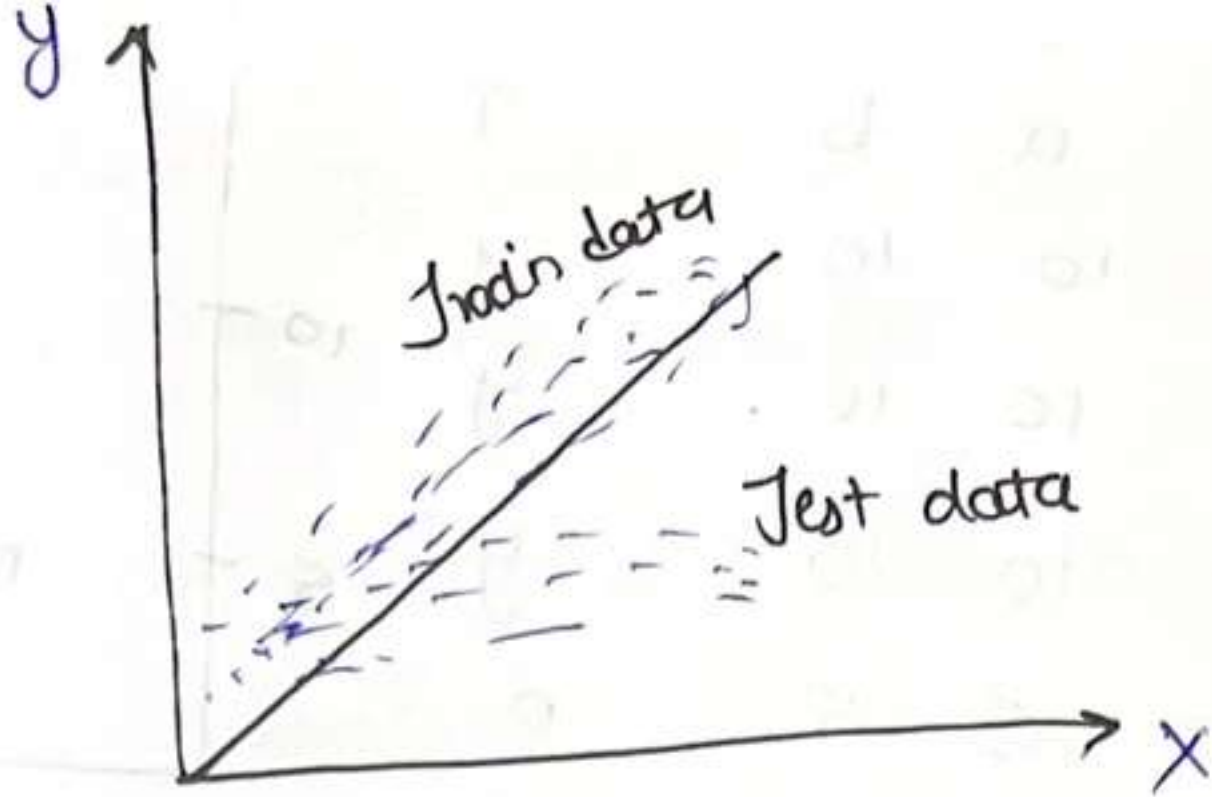 y
Train data
Test data
X